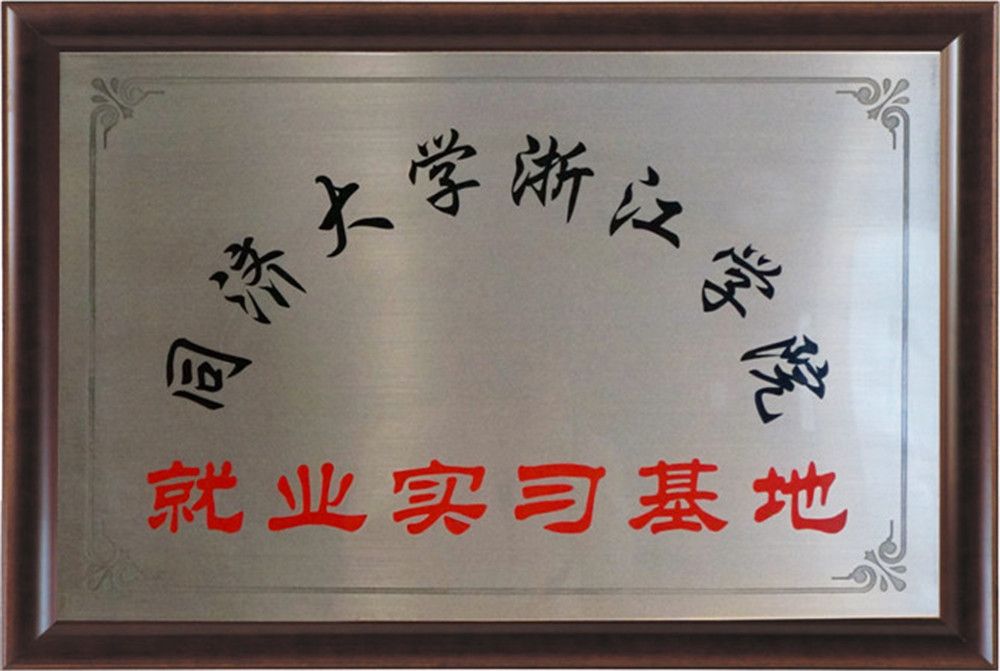 同济大学浙江学院
就业实习基地